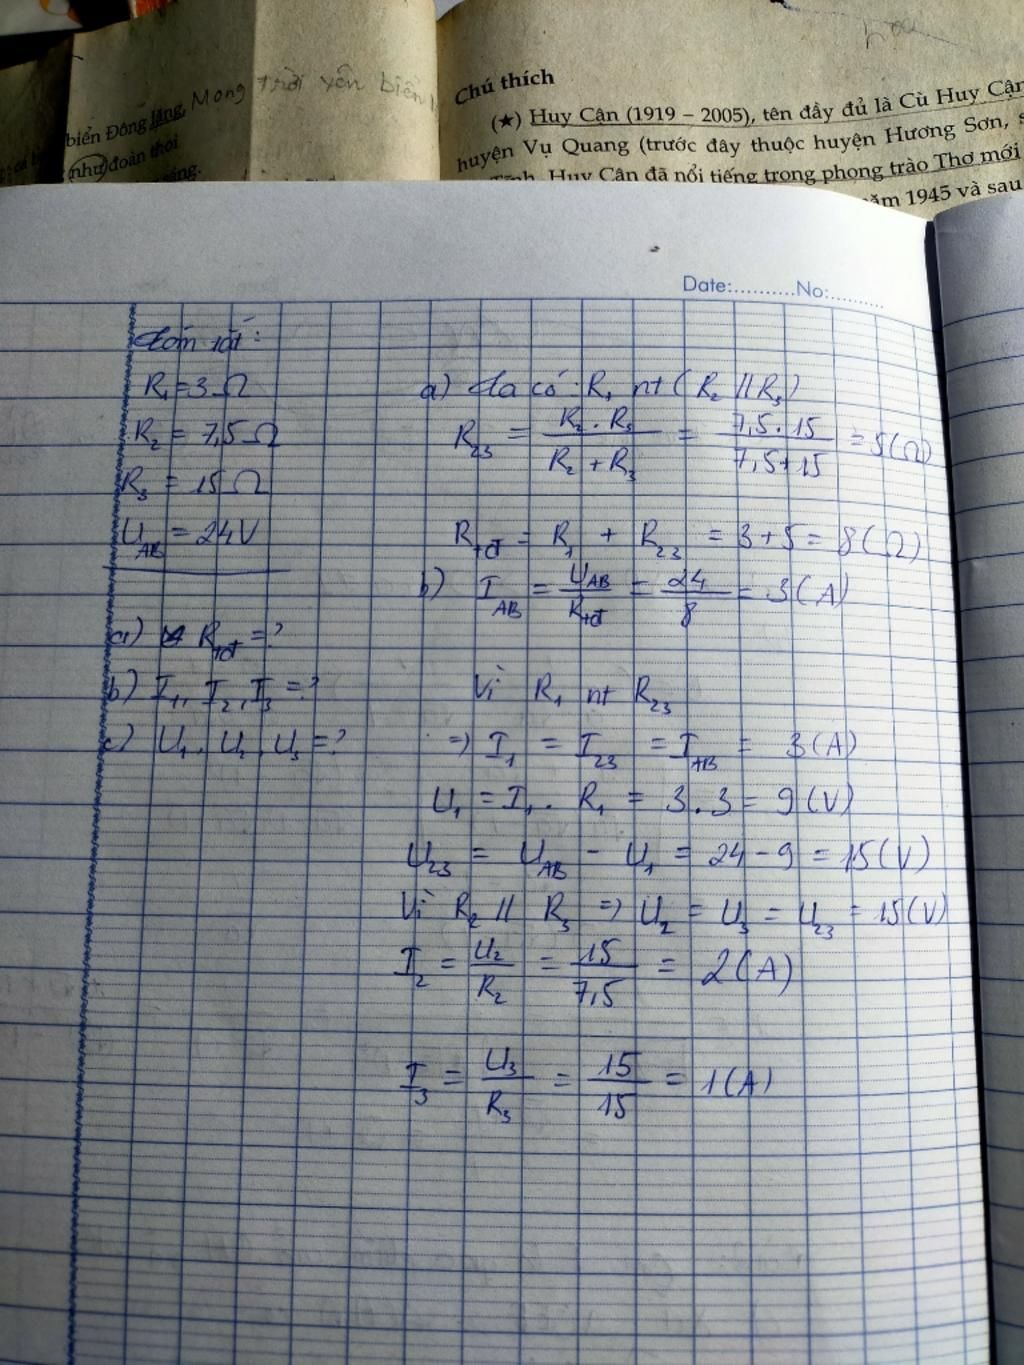 lặng, Mong trời yên biển
biển Đông
như đoàn thoi
Chú thích
(★) Huy Cận (1919 – 2005), tên đầy đủ là Cù Huy Cận
huyện Vụ Quang (trước đây thuộc huyện Hương Sơn,
Huy Cận đã nổi tiếng trong phong trào Thơ mới
năm 1945 và sau
Date:..........No:..........
Tóm tắt:
R₁ = 3 Ω
R₂ = 7,5 Ω
R₃ = 15 Ω
U_AB = 24V
a) R_tđ = ?
b) I₁, I₂, I₃ = ?
c) U₁, U₂, U₃ = ?
a) Ta có: R₁ nt (R₂ // R₃)
R₂₃ = R₂ . R₃ / R₂ + R₃ = 7,5 . 15 / 7,5 + 15 = 5 (Ω)
R_tđ = R₁ + R₂₃ = 3 + 5 = 8 (Ω)
b) I_AB = U_AB / R_tđ = 24 / 8 = 3 (A)
Vì R₁ nt R₂₃
=> I₁ = I₂₃ = I_AB = 3 (A)
U₁ = I₁ . R₁ = 3 . 3 = 9 (V)
U₂₃ = U_AB - U₁ = 24 - 9 = 15 (V)
Vì R₂ // R₃ => U₂ = U₃ = U₂₃ = 15 (V)
I₂ = U₂ / R₂ = 15 / 7,5 = 2 (A)
I₃ = U₃ / R₃ = 15 / 15 = 1 (A)